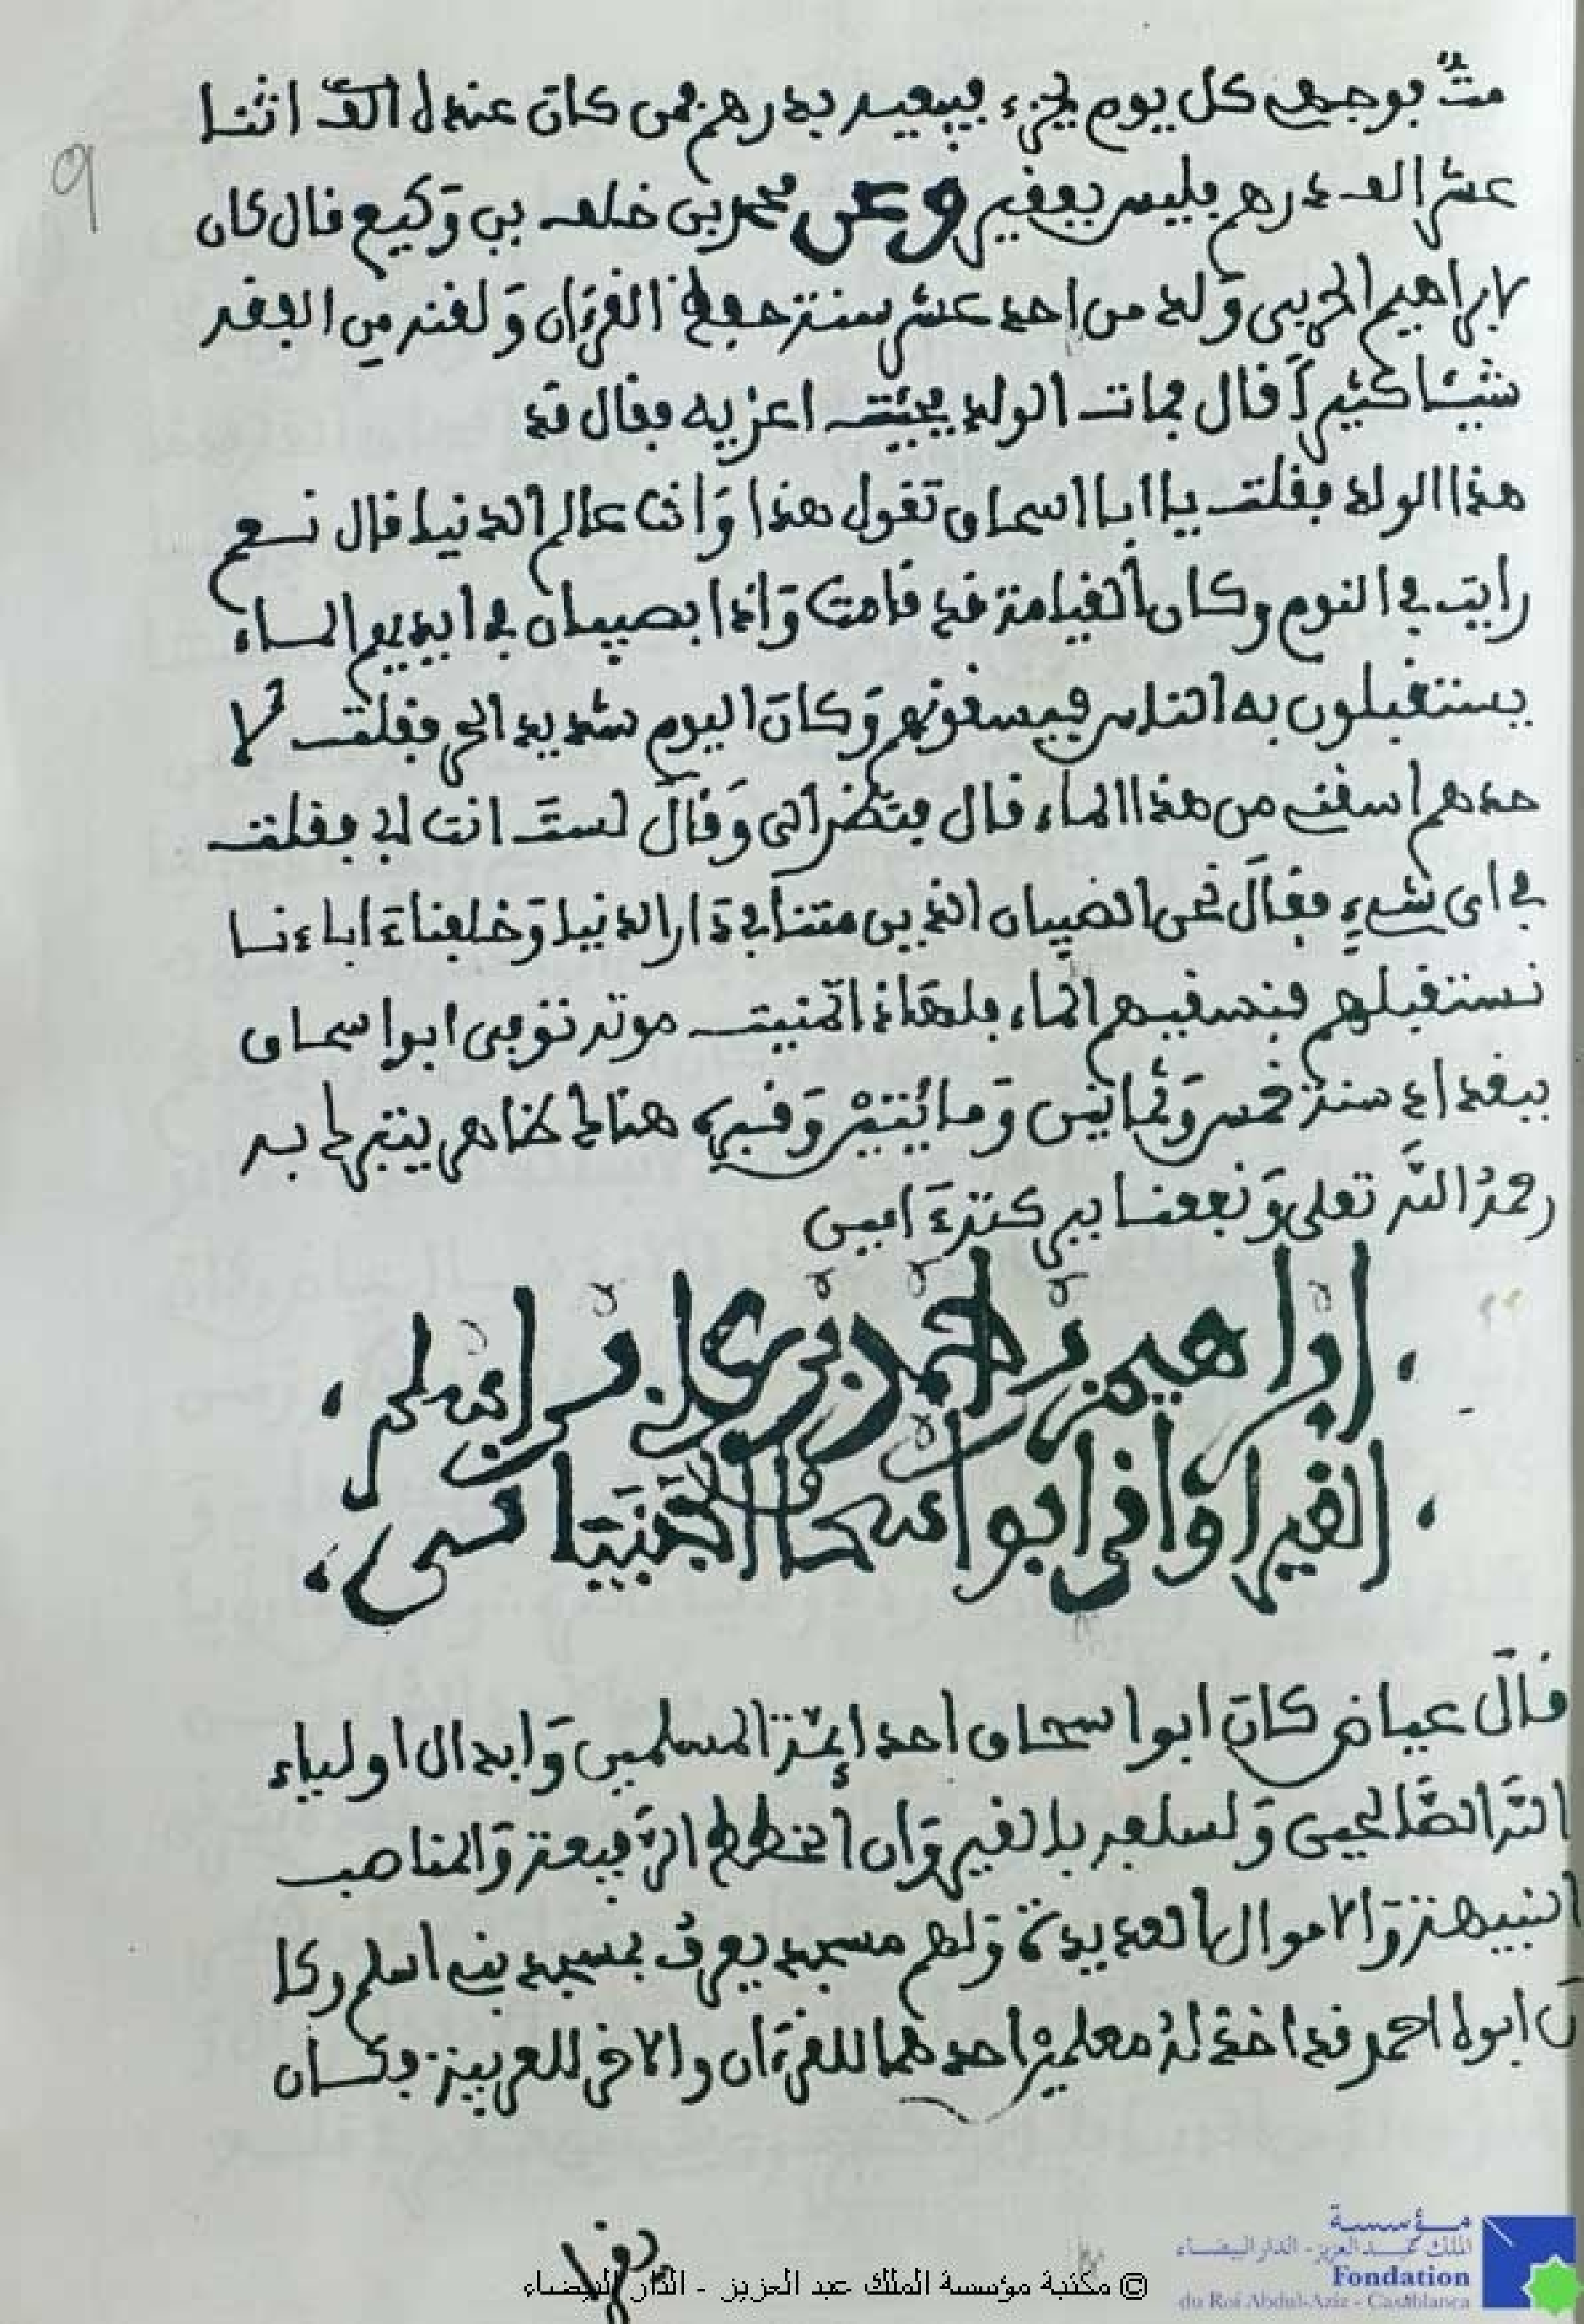 متّ فوجهي كل يوم بجزء فيبيعه بدرهم فمن كان عنده الف اثنا
عشر الف درهم فليس بفقير وعن محمد بن خلف بن وَكيع قال كان
لابراهيم الحربي وَلد من احد عشر سنة حفظ القرءان وَلقنه من الفقه
شيئا كثيرا قال فمات الولد فجئت اعزيه فقال قد
هذا الولد فقلت يا ابا اسحاق تقول هذا وَانت عالم الدنيا قال نعم
رايت في النوم وكان القيامة قد قامت وَاذا بصبيان في ايديهم الماء
يستقبلون به الناس فيسقونهم وَكان اليوم شديد الحر فقلت لا
حدهم اسقني من هذا الماء قال فنضر الى وَقال لست انت ابي فقلت
في اي شيءٍ فقال نحن الصبيان الذين متنا في دار الدنيا وَخلفنا ءاباءنا
نستقبلهم فنسقيهم الماء فلهذا تمنيت موته توفي ابو اسحاق
ببغداد سنة خمس وَثمانين وَمائتين وَقبره هنالك ظاهر يتبرك به
رحمهُ الله تعلى وَنفعنا ببركته ءامين
ابراهيم بن احمد بن علي بن اسلم
القيرواني ابو اسحاق الجبنياني
قال عياض كان ابو اسحاق احد ائمة المسلمين وَابدال اولياء
الله الصالحين وَلسلفه بالقيروان الخطط الرّفيعة وَالمناصب
النبيهة وَالاموال العديدة وَلهم مسجد يعرف بمسجد بني اسلم وكا
ن ابوه احمد قد اخذ لهُ معلمين احدهما للقرءان والاخر للعربية وكان
© مكتبة مؤسسة الملك عبد العزيز - الدار البيضاء
مؤسسة
الملك عبد العزيز - الدار البيضاء
Fondation
du Roi Abdul-Aziz - Casablanca
9